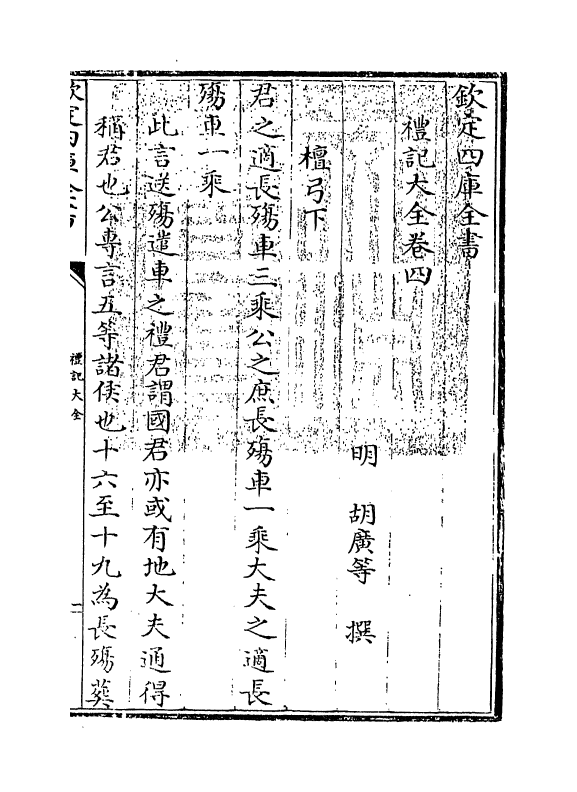 欽定四庫全書
禮記大全卷四
明 胡廣等 撰
檀弓下
君之適長殤車三乘公之庶長殤車一乘大夫之適長
殤車一乘
此言送殤遣車之禮君謂國君亦或有地大夫通得
稱君也公專言五等諸侯也十六至十九為長殤葬
欽定四庫全書
禮記大全
一